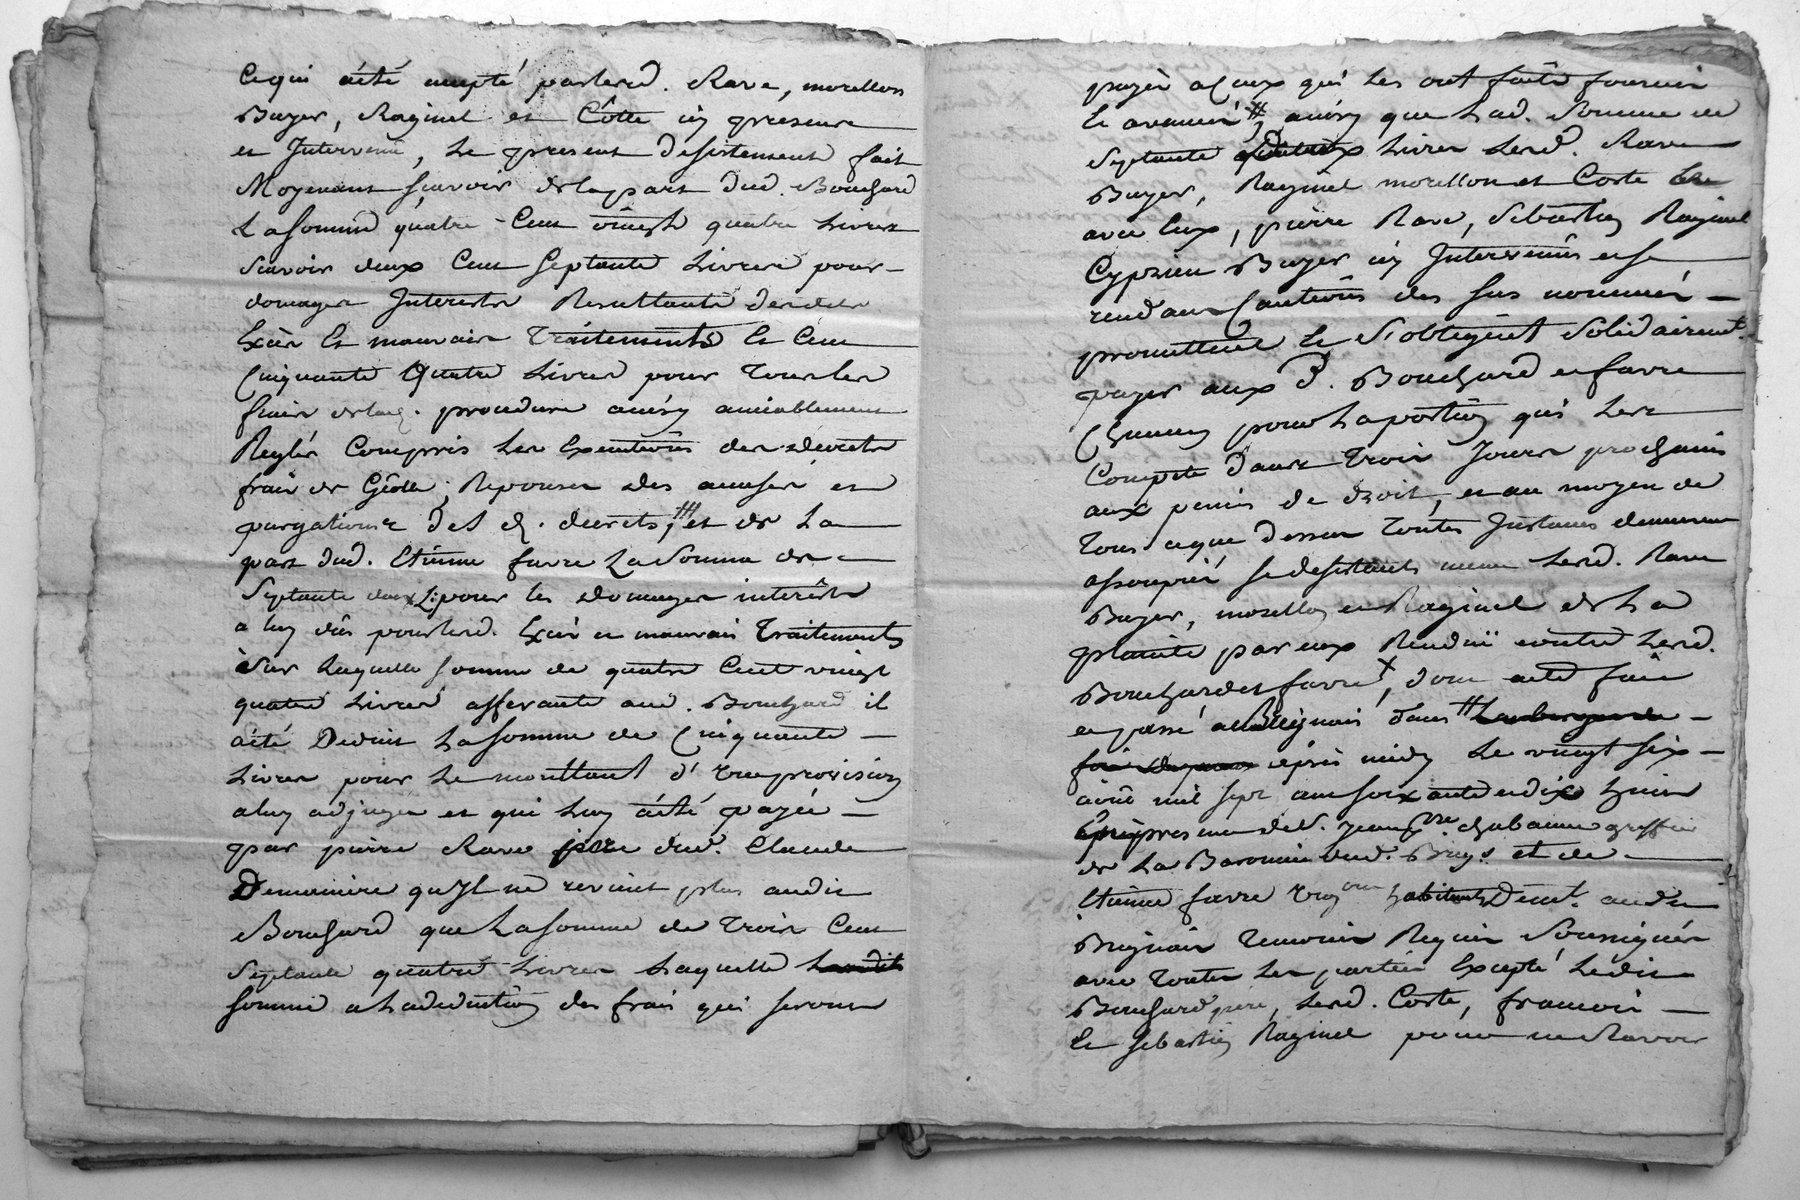 Cequi aété accepté parlesd. Rave, morellon
Buyer, Raginel et Côtte icy presens
et Intervenu, Le present desistement fait
Moyenant scavoir delapart dud. Bouchard
La somme quatre Cent vingt quatre Livres
scavoir deux Cent septante Livres pour
domages Interests Resultants desdits
Excès et mauvais Traitements et Cent
Cinquante Quatre Livres pour Tous les
frais delad. procedure aussy amiablement
Reglés Compris les Executoires des decrets
frais de Géolle, Reponses des accusés et
purgations des d. decrets, et de La
part dud. Etienne favre La Somme de
Septante deux L. pour les domages interêts
a luy dûs pour lesd. Excès et mauvais Traitements
Sur Laquelle somme de quatre Cent vingt
quatre Livres afferante aud. Bouchard il
aété Deduit La somme de Cinquante
Livres pour Le monttant d'une provision
aluy adjugée et qui Luy aété payée
par pierre Rave père dud. Claude
Demaniere qu'il ne revient plus audit
Bouchard que La somme de Trois Cent
Septante quatre Livres Laquelle Laditte
somme a Ladeduction des frais qui seront
payés a Ceux qui Les ont faits fournir
et avancés, aussy que Lad. Somme de
Septante deux Livres Lesd. Rave
Buyer, Raginel morellon et Coste
avec Eux, pierre Rave, Sebastien Raginel
Cyprien Buyer icy Intervenus et se
rendant Cautions des sus nommés
promettent et s'obligent Solidairement
payer aux d. Bouchard et favre
Chacun pour La portion qui Les
Compete dans Trois Jours prochains
aux peines de droit, et au moyen de
Tous ceque dessus Toutes Instances demeurent
assoupies se desistants meme Lesd. Rave
Buyer, morellon et Raginel de La
plainte par eux Rendüe contre Lesd.
Bouchard et favre, dont acte fait
et passé a Brignais dans
après midy Le vingt six
avril mil sept cent soixante et dix huit
En presence de S. Jean chabanne greffier
de La Baronnie dud. Brig.s et de
Etienne favre habitants Deme.t audit
Brignais Temoins Requis Soussignés
avec Toutes Les parties Excepté Ledit
Bouchard père, Lesd. Coste, francois
et Sebastien Raginel pour ne Savoir